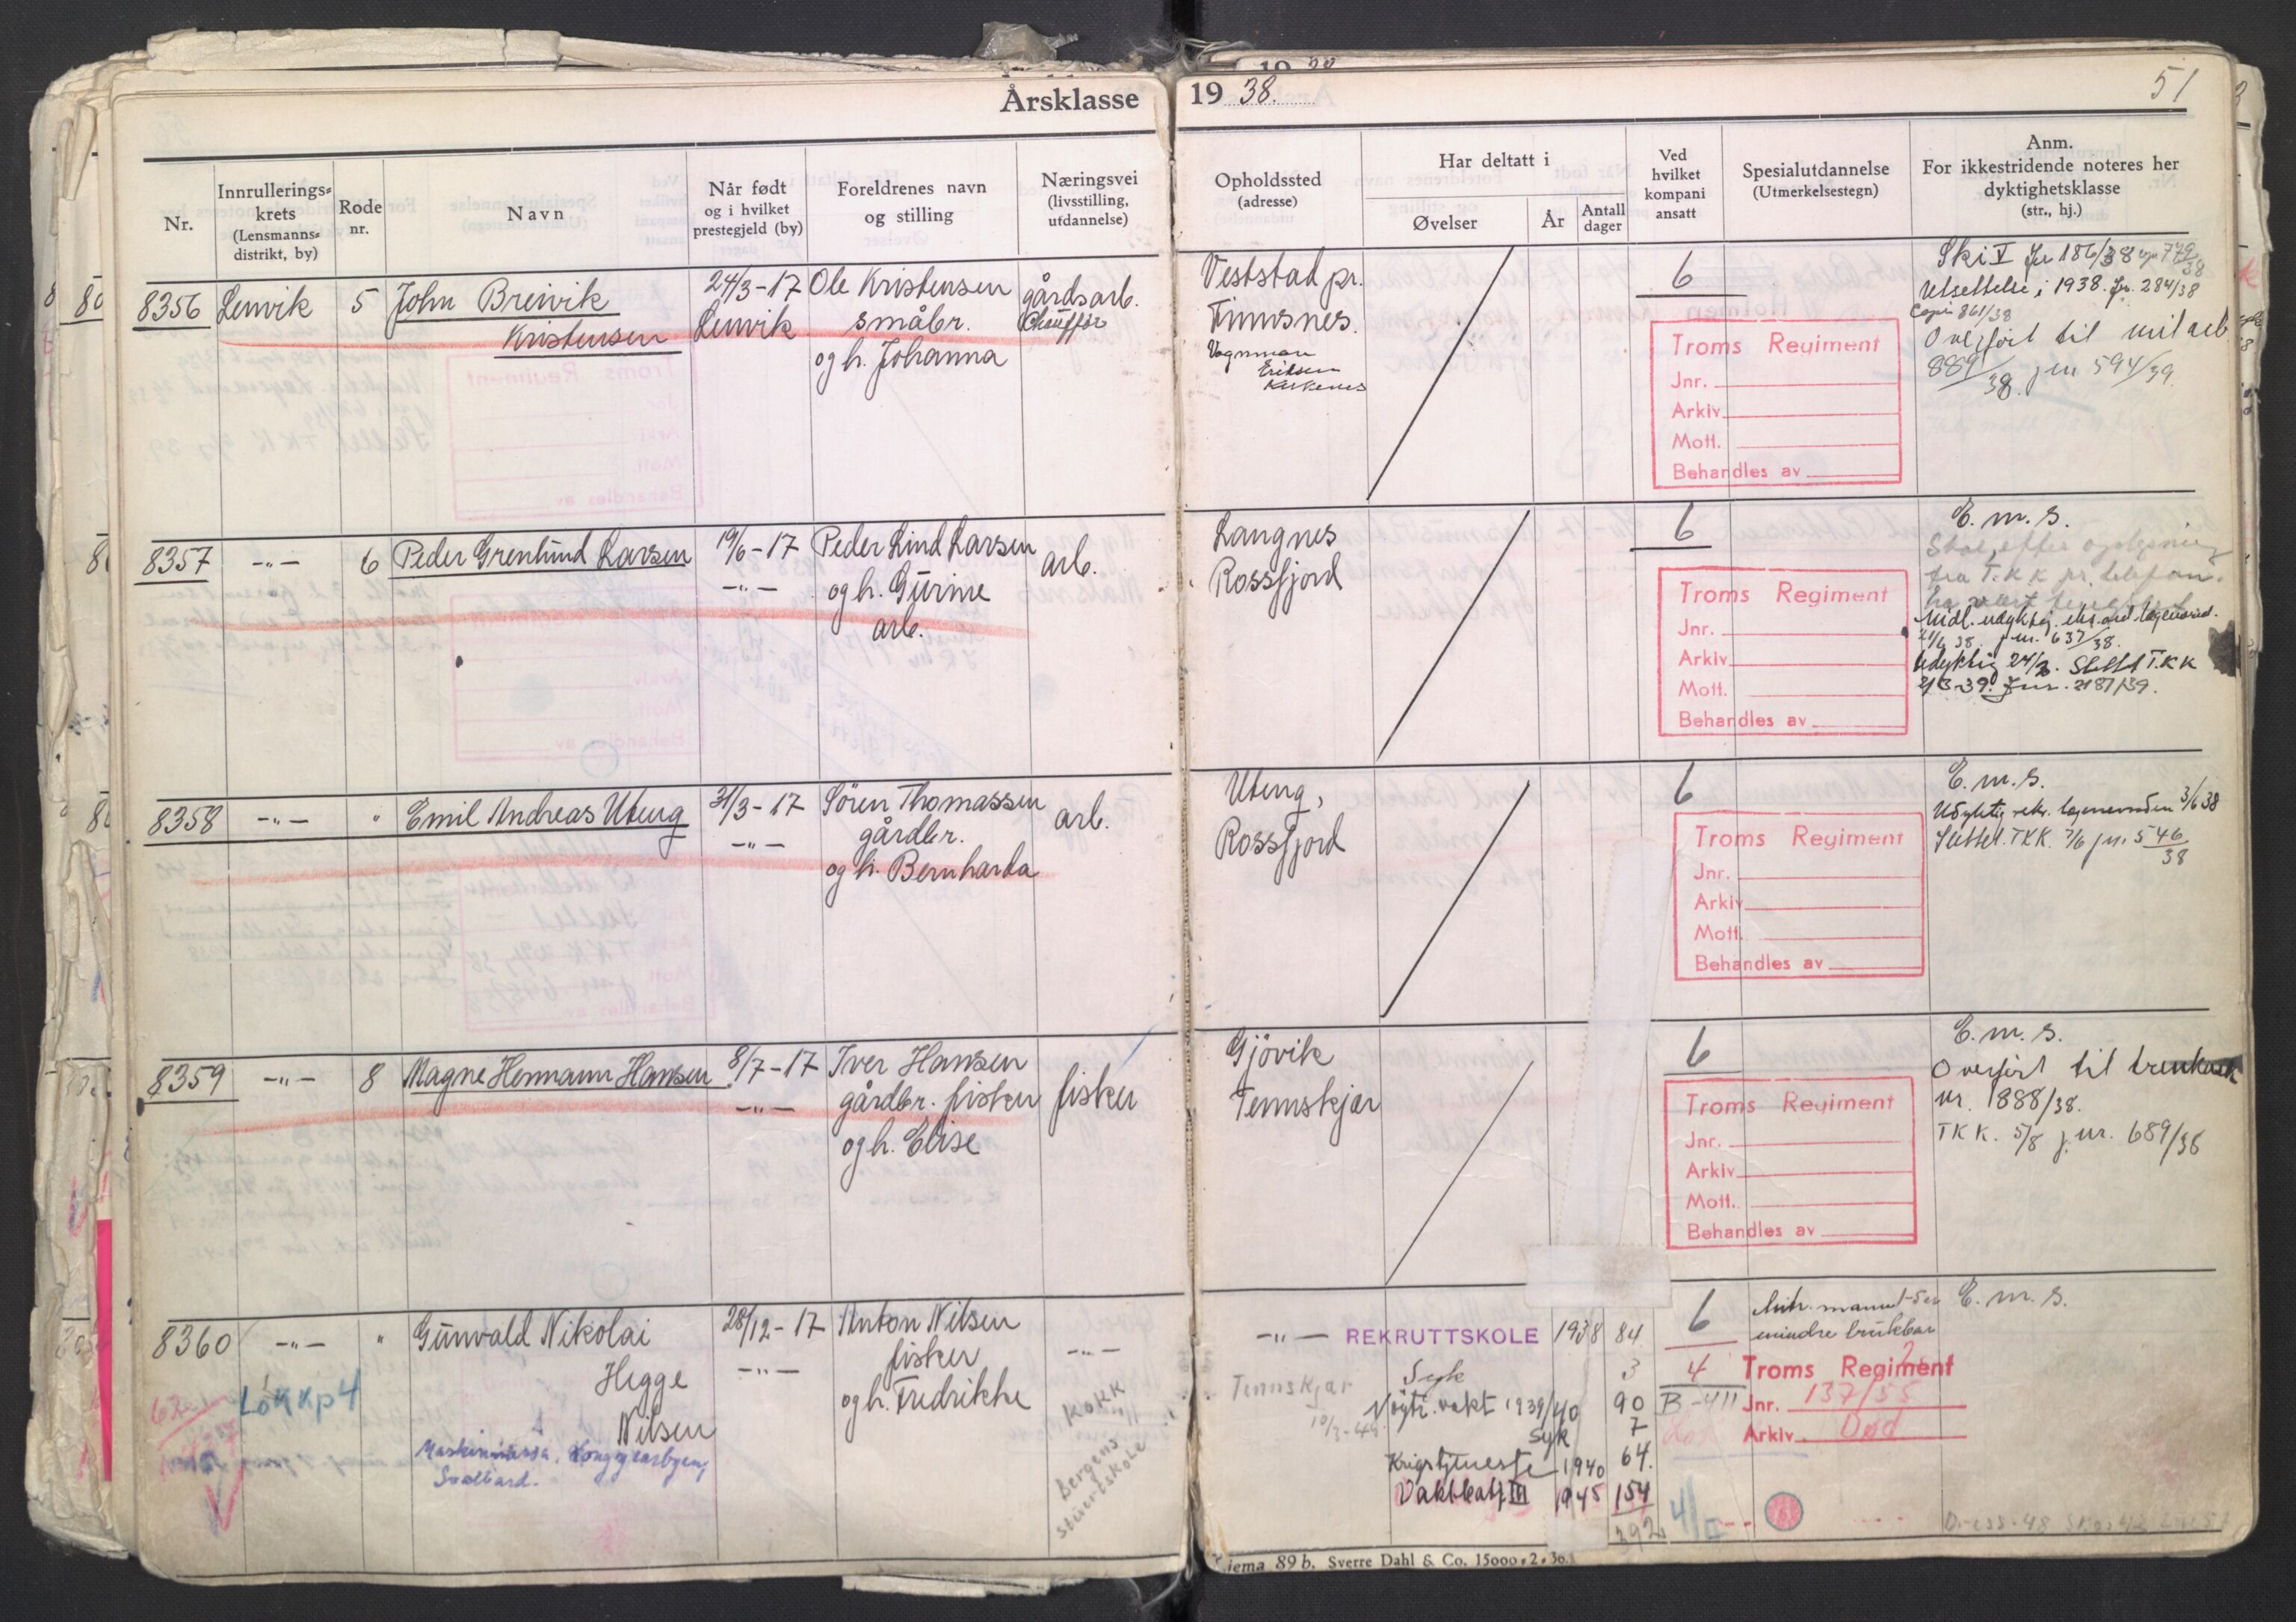 Årsklasse 19 38.
51
Nr.
Innrullerings-
krets
(Lensmanns-
distrikt, by)
Rode
nr.
Navn
Når født
og i hvilket
prestegjeld (by)
Foreldrenes navn
og stilling
Næringsvei
(livsstilling,
utdannelse)
Opholdssted
(adresse)
Har deltatt i
Øvelser
År
Antall
dager
Ved
hvilket
kompani
ansatt
Spesialutdannelse
(Utmerkelsestegn)
Anm.
For ikkestridende noteres her
dyktighetsklasse
(str., hj.)
8356 Lenvik 5 John Breivik
Kristensen
24/3-17
Lenvik
Ole Kristensen
småbr.
og h. Johanna
gårdsarb.
Chauffør
Veststad pr.
Finnsnes.
Vognman
Eriksen
Kirkenes
6
Troms Regiment
Jnr.
Arkiv
Mott.
Behandles av
Ski V Jr 186/38
Utsettelse i 1938. Jr. 284/38
861/38
Overført til mit arb.
889/38. jnr 594/39.
8357 -"- 6 Peder Grenlund Larsen
19/6-17
-"-
Peder Lind Larsen
og h. Gurine
arb.
arb.
Langnes
Rossfjord
6
Troms Regiment
Jnr.
Arkiv
Mott.
Behandles av
E. m. s.
Skal efter oplysning
fra T.K.K. pr. telefon.
Midl. udyktig
637/38.
Udyktig 24/3. Slettet T.K.K
Jnr. 2187/39.
8358 -"- " Emil Andreas Uteng
31/3-17
-"-
Sören Thomassen
gårdbr.
og h. Bernharda
arb.
Uteng,
Rossfjord
6
Troms Regiment
Jnr.
Arkiv
Mott.
Behandles av
E. m. s.
Udyktig 3/6 38
Slettet. TKK. 7/6 jnr. 546/38
8359 -"- 8 Magne Hermann Hansen
8/7-17
-"-
Iver Hansen
gårdbr. fisker
og h. Elise
fisker
Gjövik
Tennskjær
6
Troms Regiment
Jnr.
Arkiv
Mott.
Behandles av
E. m. s.
Overført til
nr. 888/38.
TKK. 5/8 j. nr. 689/38
8360 -"- " Gunvald Nikolai
Hegge
Nilsen
28/12-17
-"-
Anton Nilsen
fisker
og h. Fredrikke
-"-
Kokk
Bergens
stuertskole
Longyearbyen,
Svalbard.
-"-
Tennskjær
REKRUTTSKOLE 1938 84
Syk 3
Nøytr. vakt 1939/40 90
Syk 7
Krigstjeneste 1940 64.
Vaktbatj. III 1945 154
392.
6
4
B-411
mindre brukbar
E. m. s.
Troms Regiment
Jnr. 137/55
Arkiv Død
Sverre Dahl & Co. 15000.2.30.